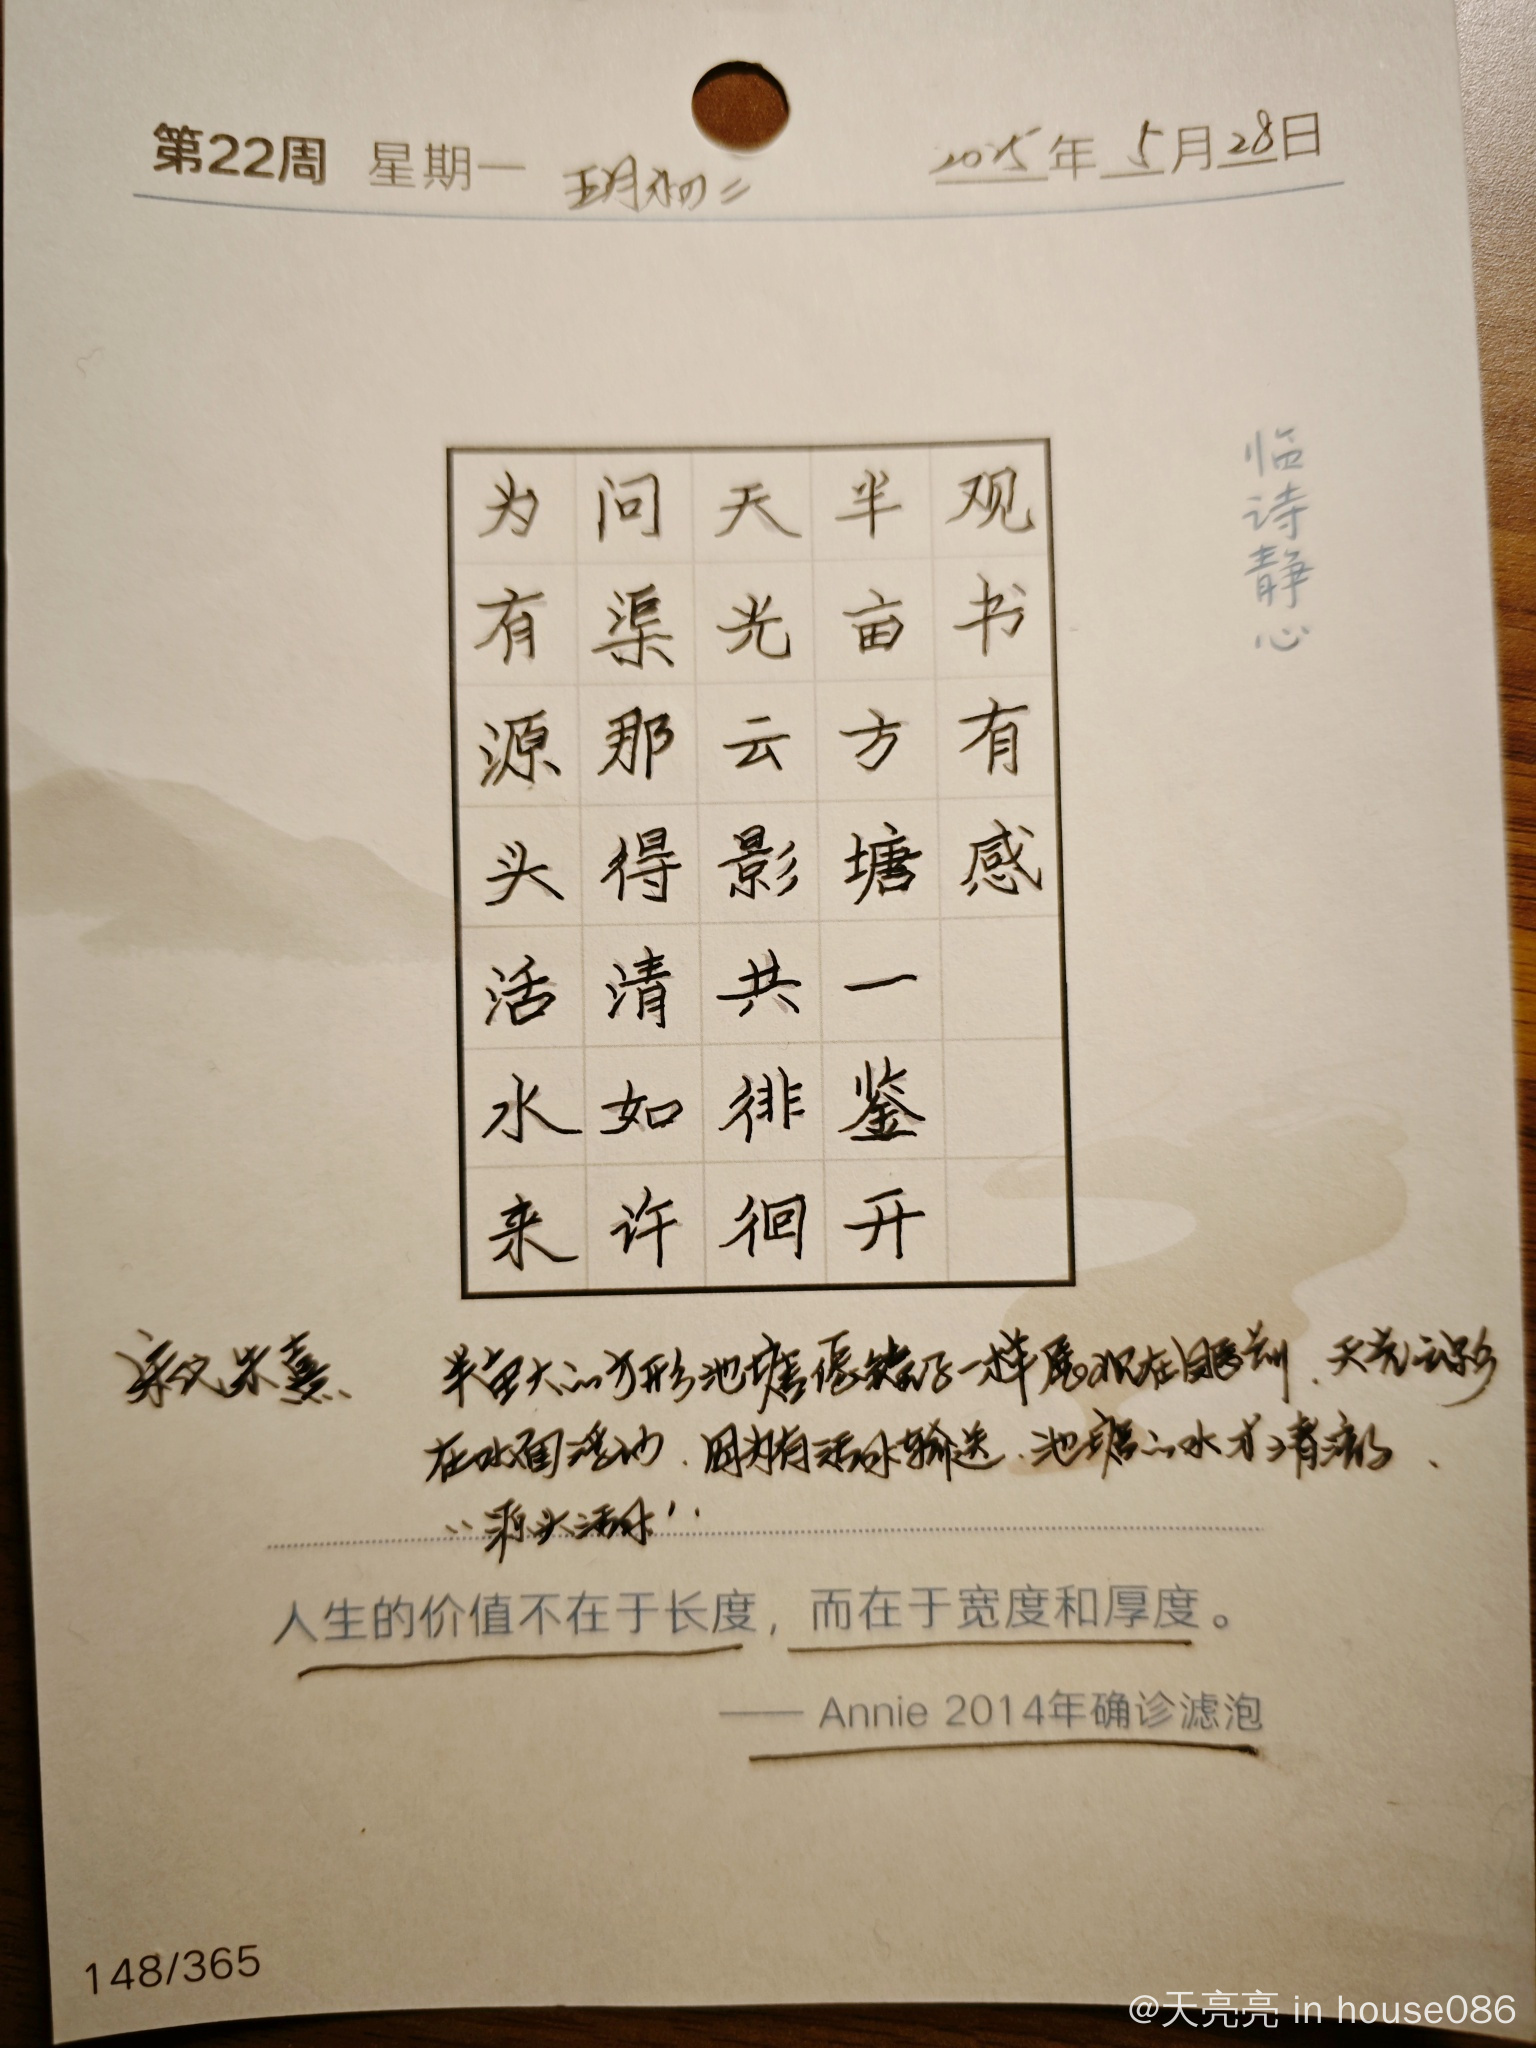 第22周 星期一 五月初二
2025年5月28日
临诗静心
观书有感
半亩方塘一鉴开
天光云影共徘徊
问渠那得清如许
为有源头活水来
宋代朱熹、 半亩大的方形池塘像镜子一样展现在眼前、天光云影
在水面浮动、因为有活水输送、池塘的水才清澈、
“源头活水”
人生的价值不在于长度，而在于宽度和厚度。
—— Annie 2014年确诊滤泡
148/365
@天亮亮 in house086